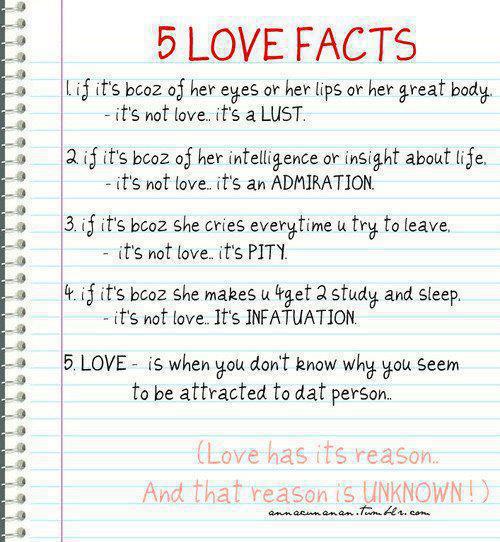 5 LOVE FACTS
1. if it's bcoz of her eyes or her lips or her great body,
- it's not love.. it's a LUST.
2. if it's bcoz of her intelligence or insight about life,
- it's not love.. it's an ADMIRATION.
3. if it's bcoz she cries everytime u try to leave,
- it's not love.. it's PITY.
4. if it's bcoz she makes u 4get 2 study and sleep,
- it's not love.. It's INFATUATION.
5. LOVE - is when you don't know why you seem
to be attracted to dat person..
(Love has its reason..
And that reason is UNKNOWN! )
annacunanan.tumblr.com